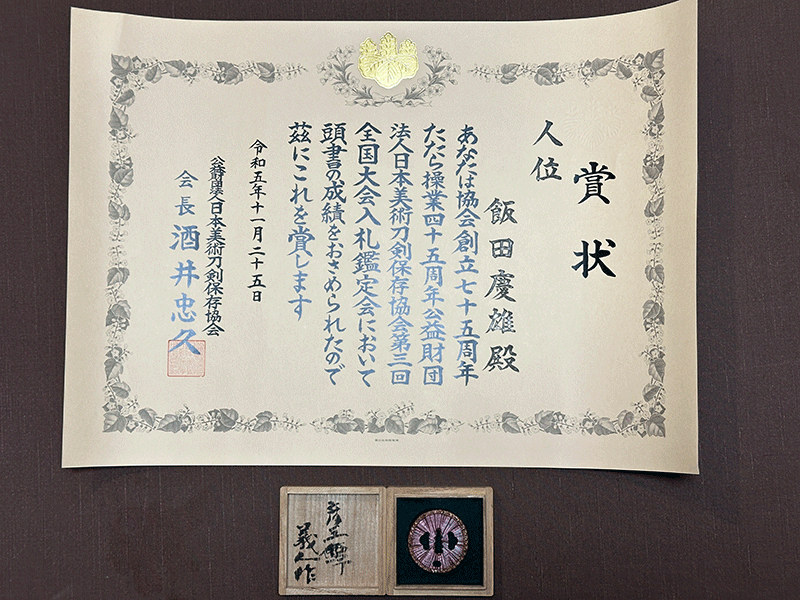 賞状
人位
飯田慶雄殿
あなたは協会創立七十五周年
たたら操業四十五周年公益財団
法人日本美術刀剣保存協会第三回
全国大会入札鑑定会において
頭書の成績をおさめられたので
茲にこれを賞します
令和五年十一月二十五日
公益財団法人日本美術刀剣保存協会
会長 酒井忠久
義人作